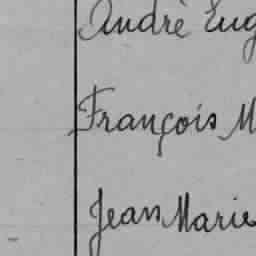 André Eug
François M
Jean Marie